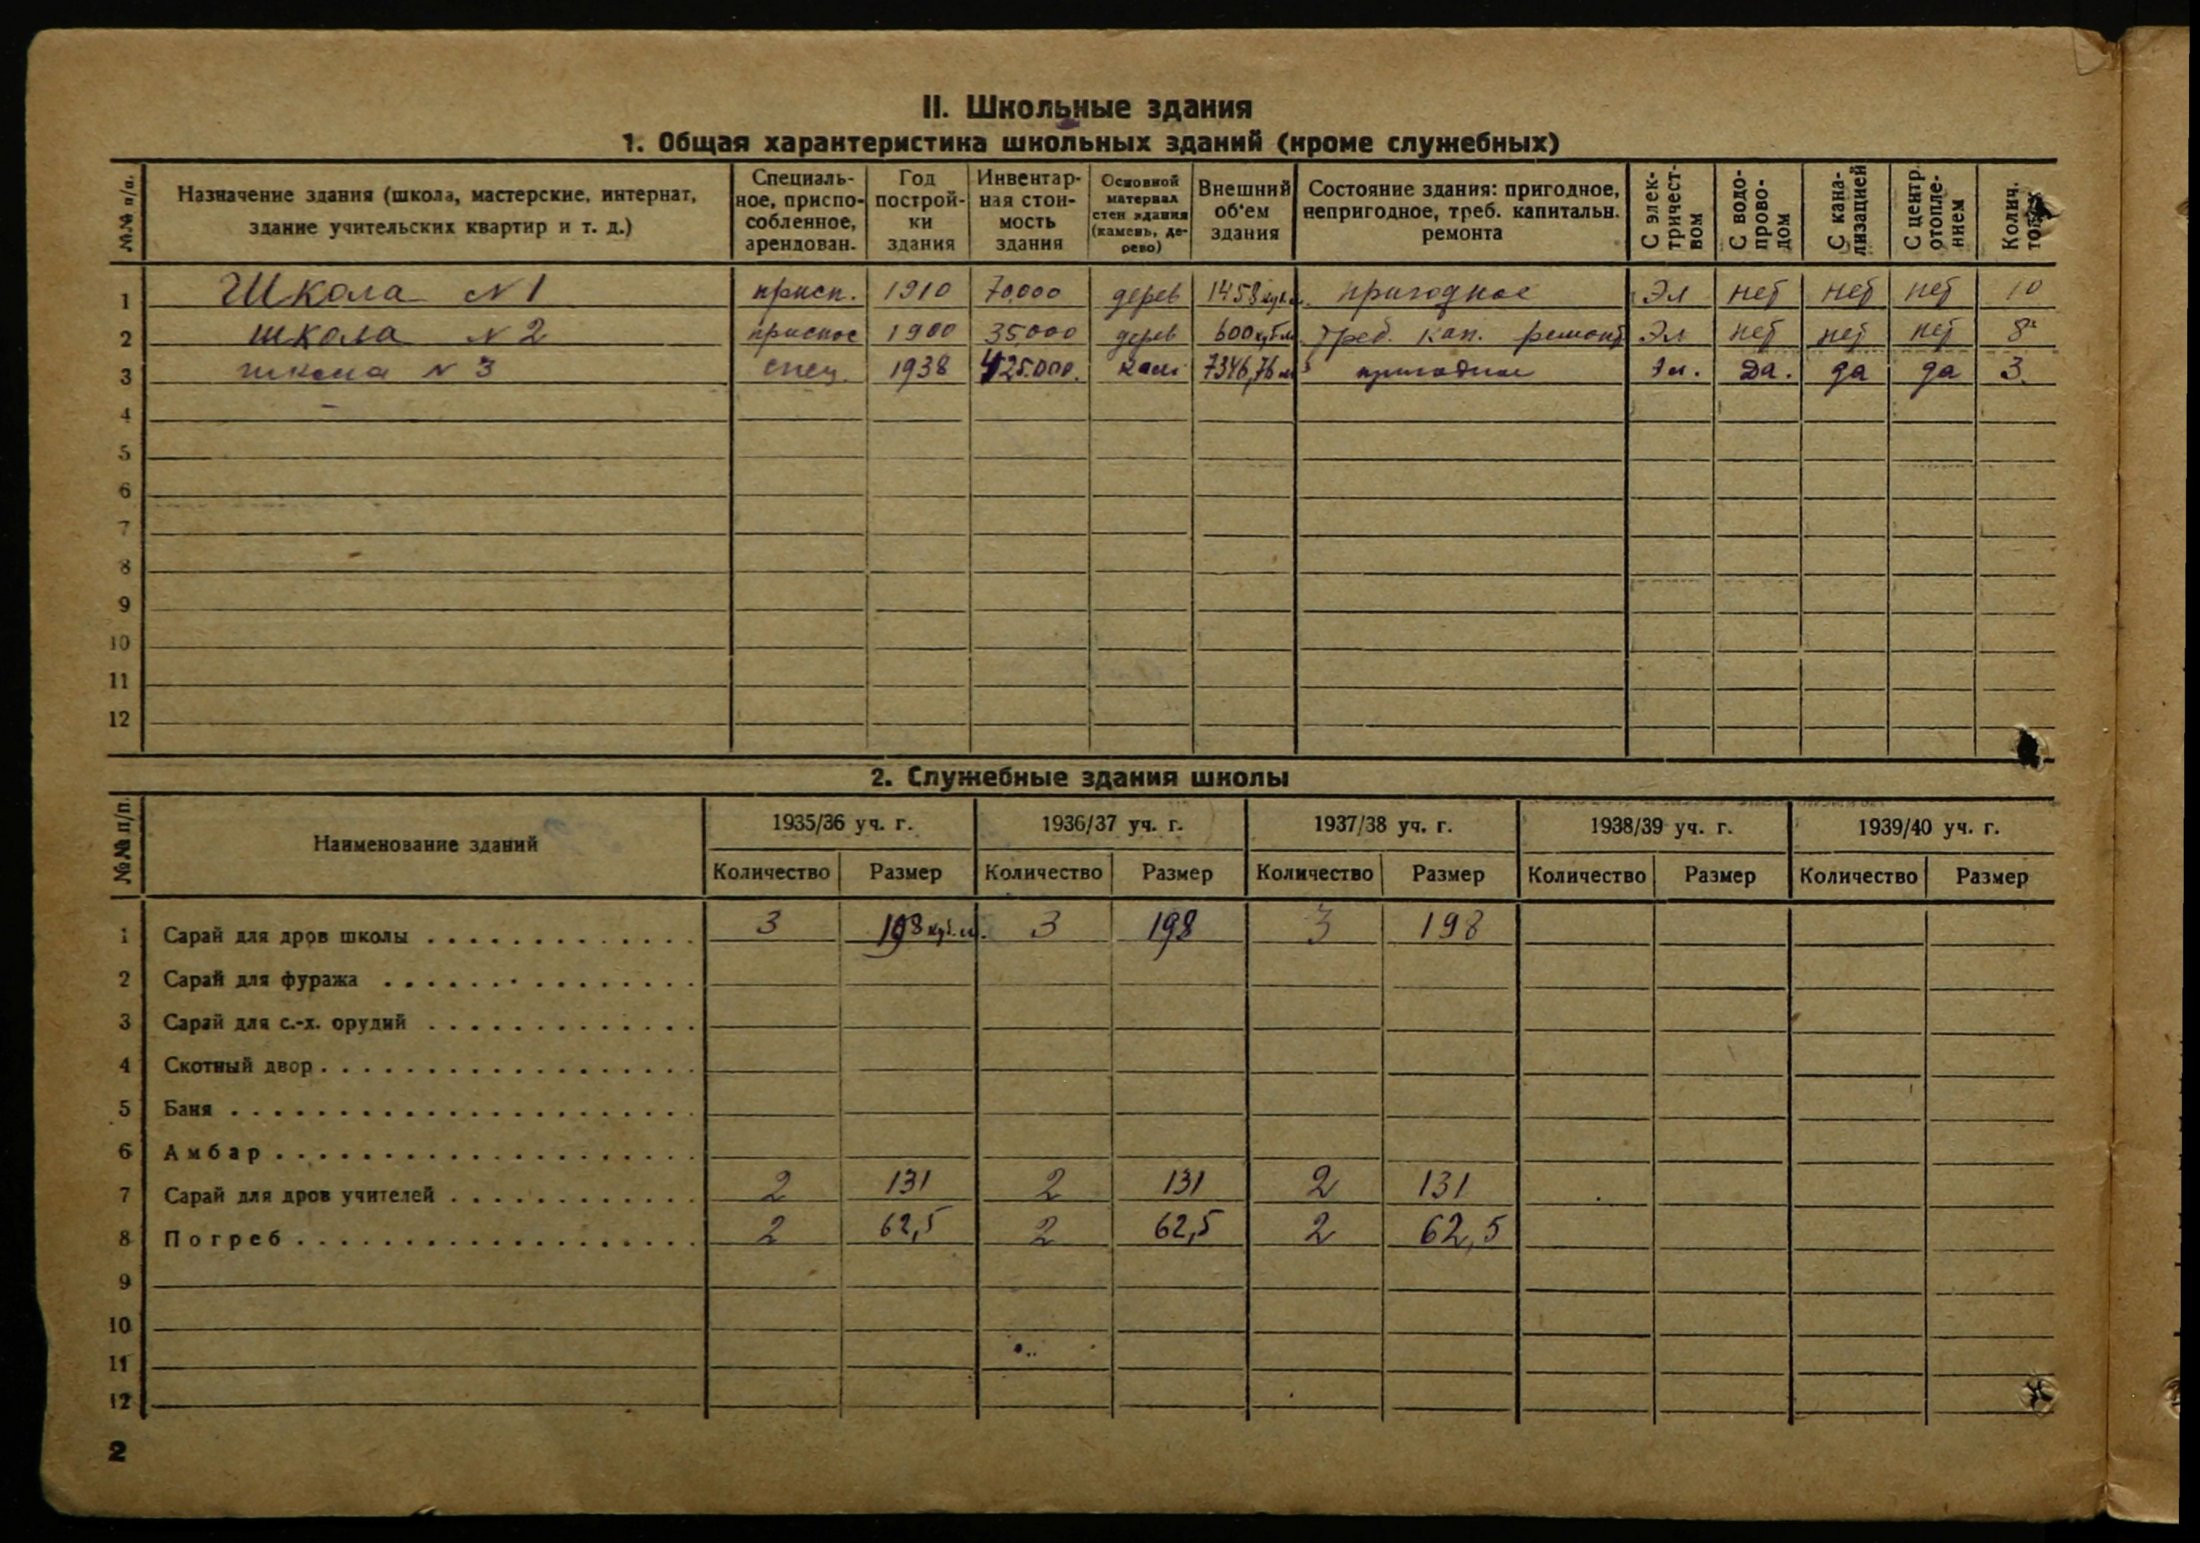 II. Школьные здания
1. Общая характеристика школьных зданий (кроме служебных)
№№ п/п. Назначение здания (школа, мастерские, интернат, здание учительских квартир и т. д.) Специальное, приспособленное, арендован. Год постройки здания Инвентарная стоимость здания Основной материал стен здания (камень, дерево) Внешний об'ем здания Состояние здания: пригодное, непригодное, треб. капитальн. ремонта С электричеством С водопроводом С канализацией С центр. отоплением Колич.
1 Школа N 1 присп. 1910 70,000 дерев 1458 куб. пригодное Эл нет нет нет 10
2 школа N 2 приспос 1900 35,000 дерев 600 куб.м Треб. кап. ремонт Эл нет нет нет 8
3 школа N 3 спец. 1938 425.000. кам 7346,76 м³ пригодное Эл. Да. да да 3.
4
5
6
7
8
9
10
11
12
2. Служебные здания школы
№№ п/п. Наименование зданий 1935/36 уч. г. 1936/37 уч. г. 1937/38 уч. г. 1938/39 уч. г. 1939/40 уч. г.
Количество Размер Количество Размер Количество Размер Количество Размер Количество Размер
1 Сарай для дров школы . . . . . . . . . . . . . 3 198 куб.м. 3 198 3 198
2 Сарай для фуража . . . . . . . . . . . . . .
3 Сарай для с.-х. орудий . . . . . . . . . . . . .
4 Скотный двор . . . . . . . . . . . . . . . . .
5 Баня . . . . . . . . . . . . . . . . . . . .
6 Амбар . . . . . . . . . . . . . . . . . . .
7 Сарай для дров учителей . . . . . . . . . . . . 2 131 2 131 2 131
8 Погреб . . . . . . . . . . . . . . . . . . 2 62,5 2 62,5 2 62,5
9
10
11
12
2